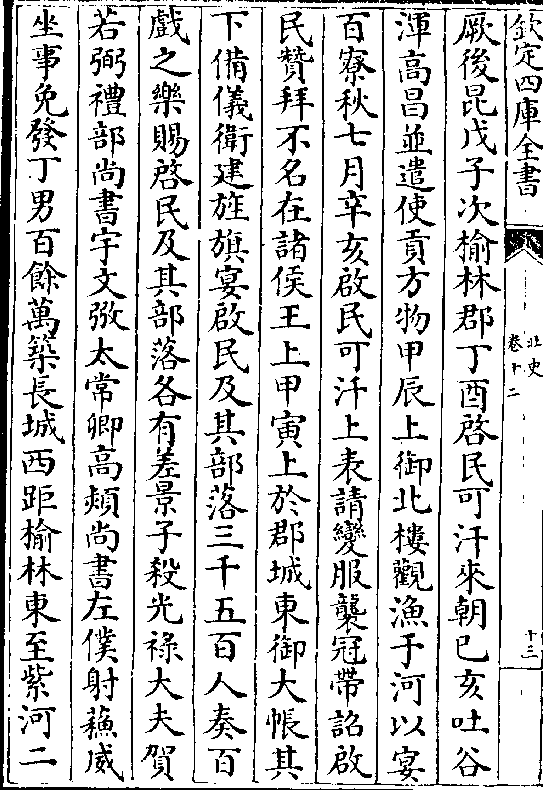 欽定四庫全書
北史
卷十二
十三
厥後昆戊子次榆林郡丁酉啓民可汗來朝已亥吐谷
渾高昌並遣使貢方物甲辰上御北樓觀漁于河以宴
百寮秋七月辛亥啟民可汗上表請變服襲冠帶詔啟
民贊拜不名在諸侯王上甲寅上於郡城東御大帳其
下備儀衛建旌旗宴啟民及其部落三千五百人奏百
戲之樂賜啓民及其部落各有差景子殺光祿大夫賀
若弼禮部尚書宇文㢸太常卿高熲尚書左僕射蘓威
坐事免發丁男百餘萬築長城西距榆林東至紫河二